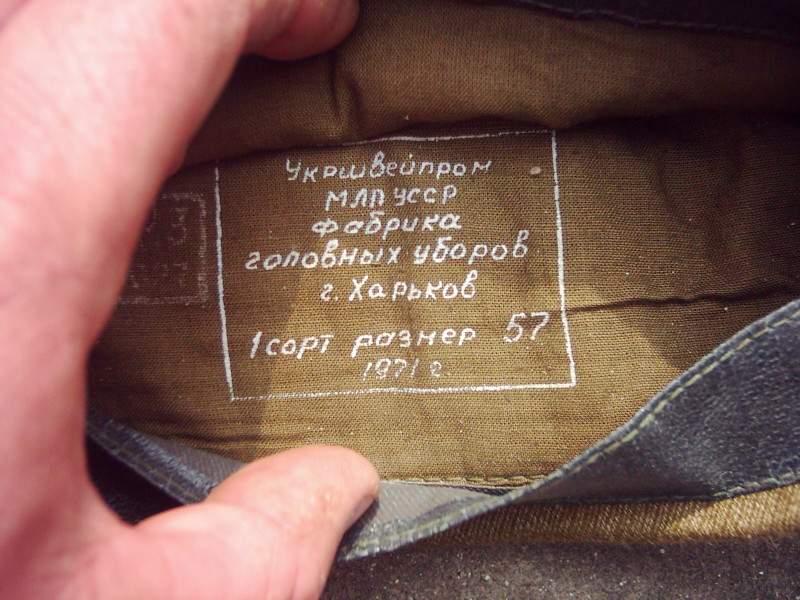 Укршвейпром
МЛП УССР
фабрика
головных уборов
г. Харьков
1 сорт размер 57
1971 г.